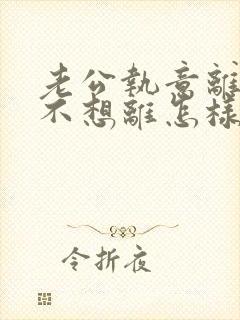 老公執意離
不想離怎樣
令折夜